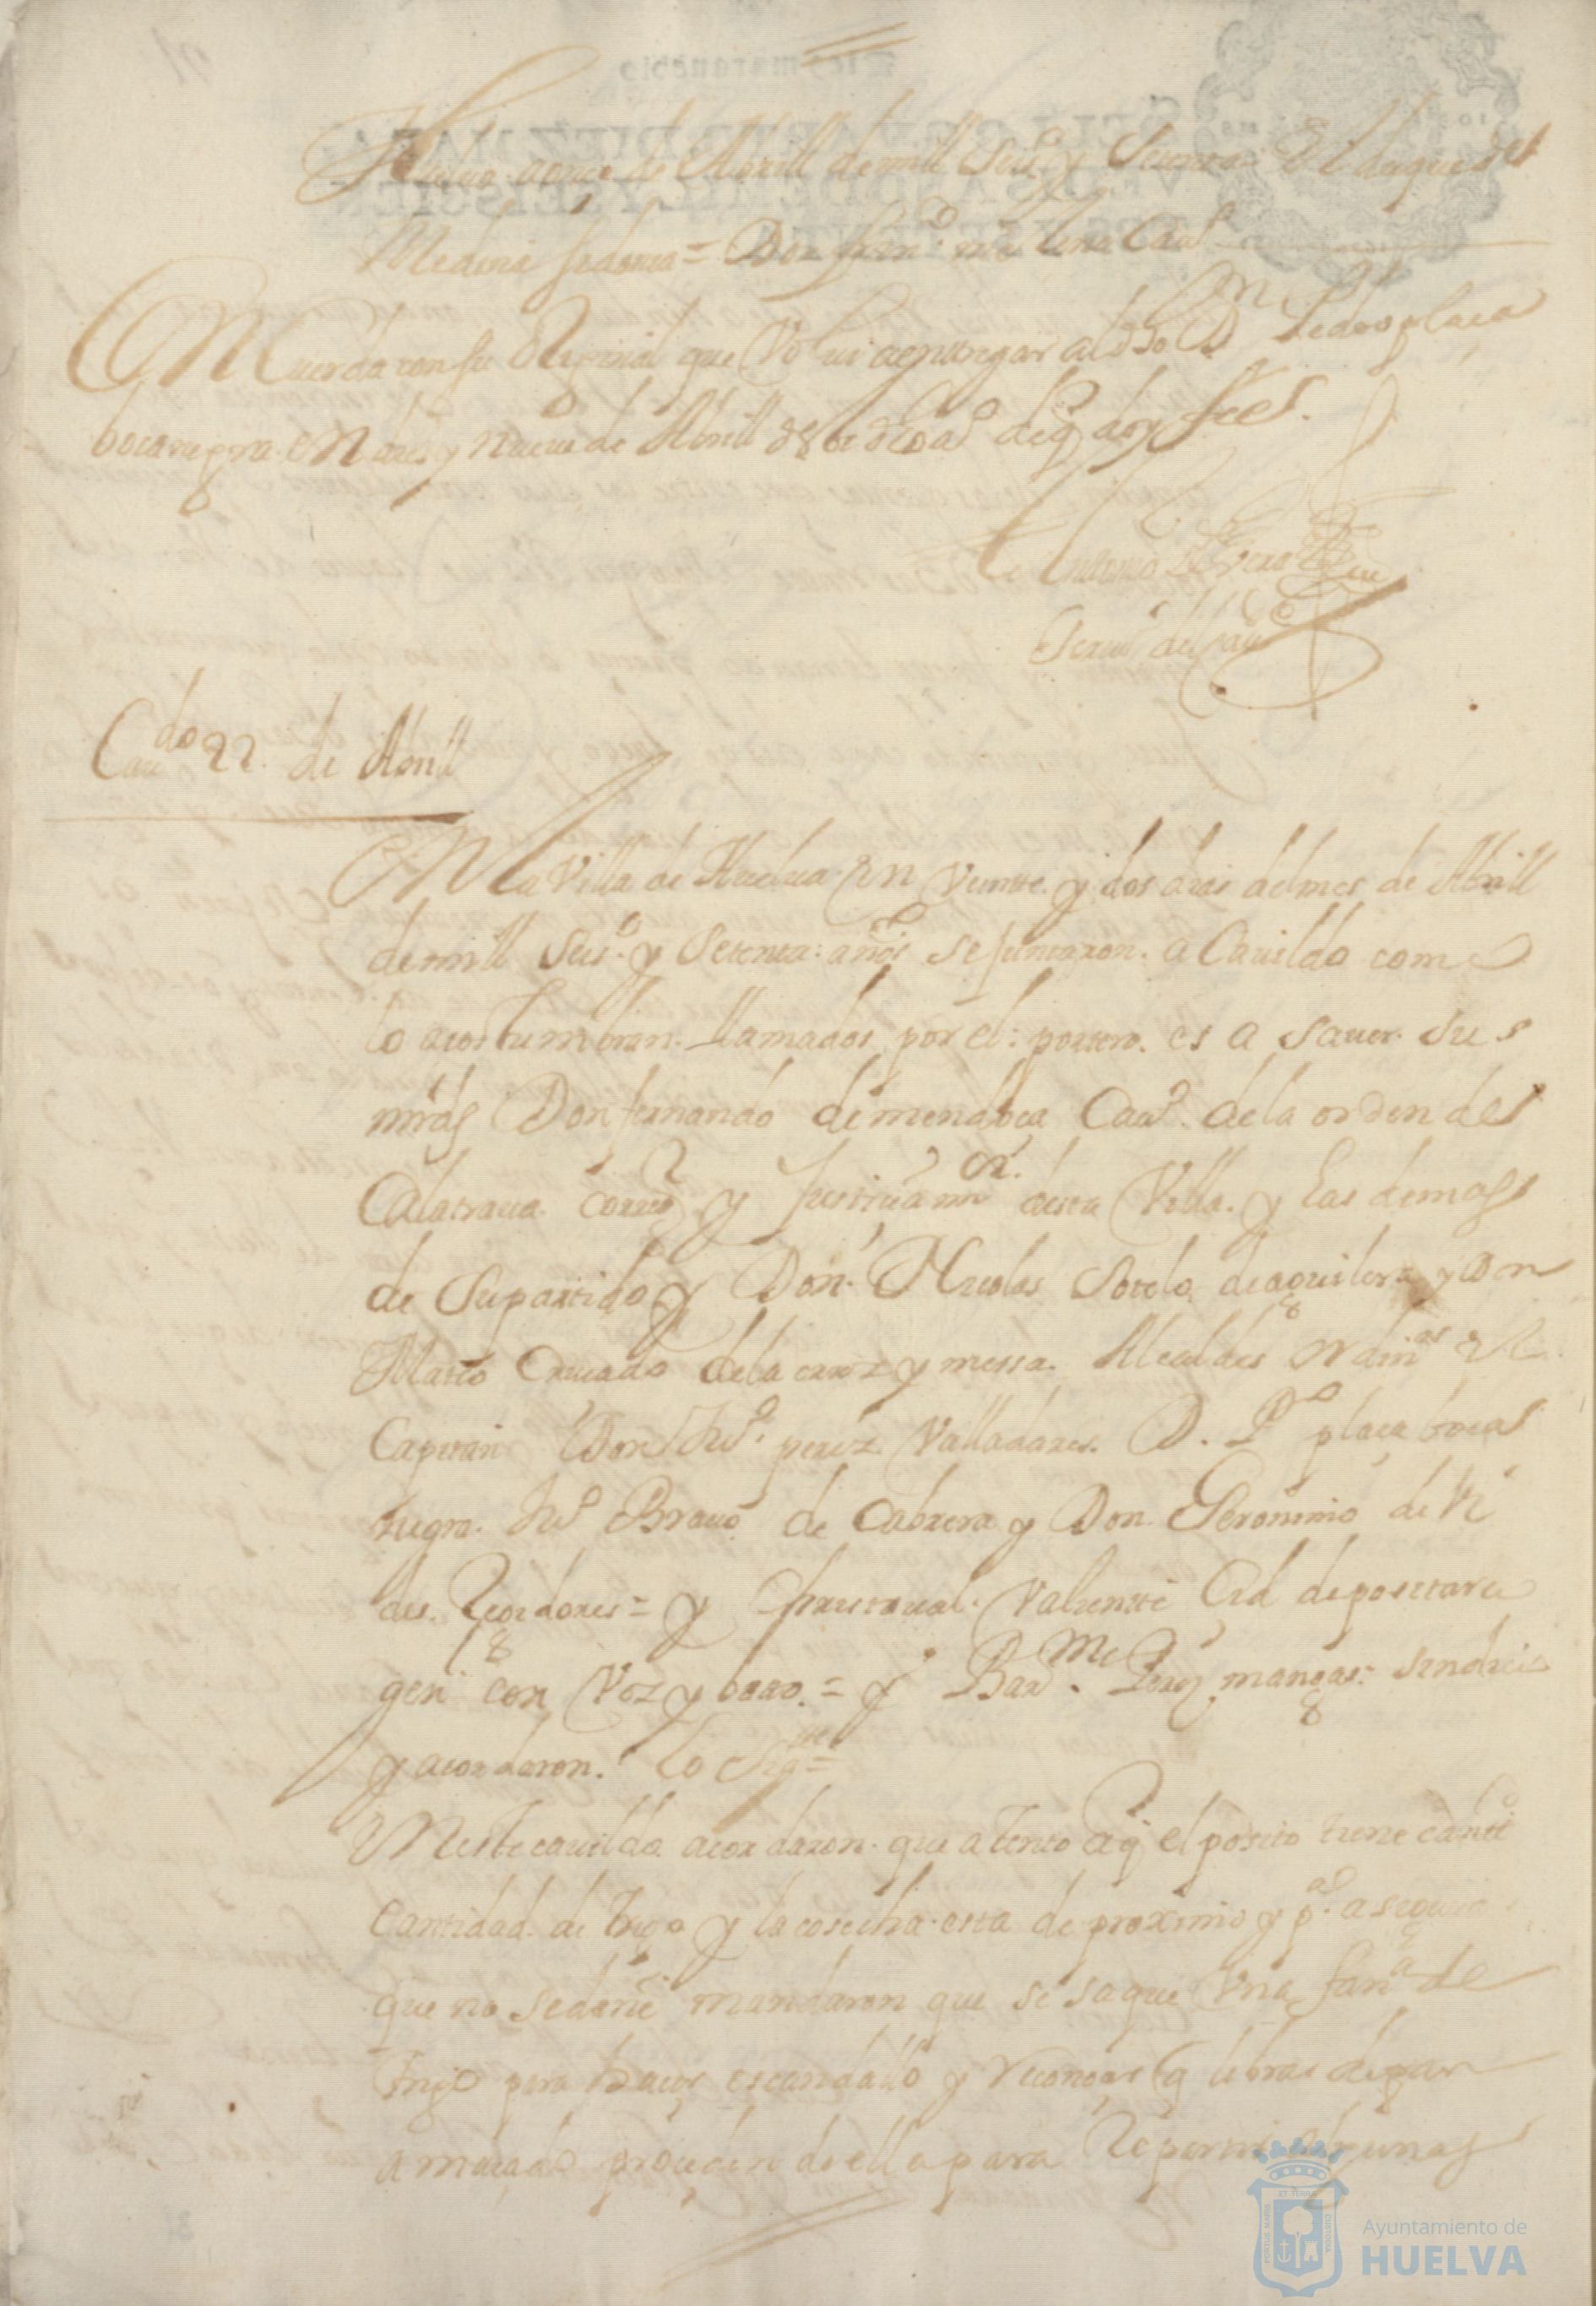 Huelua a once de Abrill de mill seis.os y setenta = El duque de
Medina sidonia = Don fran.co mrn
Concuerda con su Original que Voluí a entregar al dho D. Pedro plaça
bocanegra en dies y nueue de Abrill de dho año de q doy fee
Antonio de
Scriu.o del cau.do
Cau.do 22. de Abrill
En la Villa de Huelua en veinte y dos dias del mes de Abrill
de mill seis.os y setenta años se juntaron a Cauildo como
lo acostumbran llamados por el portero es a sauer sus
mrds Don fernando de mendoça Cau.o de la orden de
Calatraua corre.or y Justicia m.or desta Villa y las demas
de su partido y Don Nicolas Sotelo de aguilera y Don
Mateo Cruçado de la cruz y messa Alcaldes ordin.os el
Capitan Don Ju.o perez Valladares D. P.o plaça boca
negra Ju.o Brauo de Cabrera y Don Geronimo de
des Regidores = y Christoual Valiente Cid depositario
gen con Voz y boto = y Bar.me Perez mangas sindico
y acordaron lo sig.te =
En este cauildo acordaron que atento a q el posito tiene canti
cantidad de trigo y la cosecha esta de proximo y p.a
que no se dañe mandaron que se saque Vna fan.a de
trigo para haçer escandallo y reconoçer q libras de pan
amaçado proceden de ella para Repartir algunas
Ayuntamiento de
HUELVA